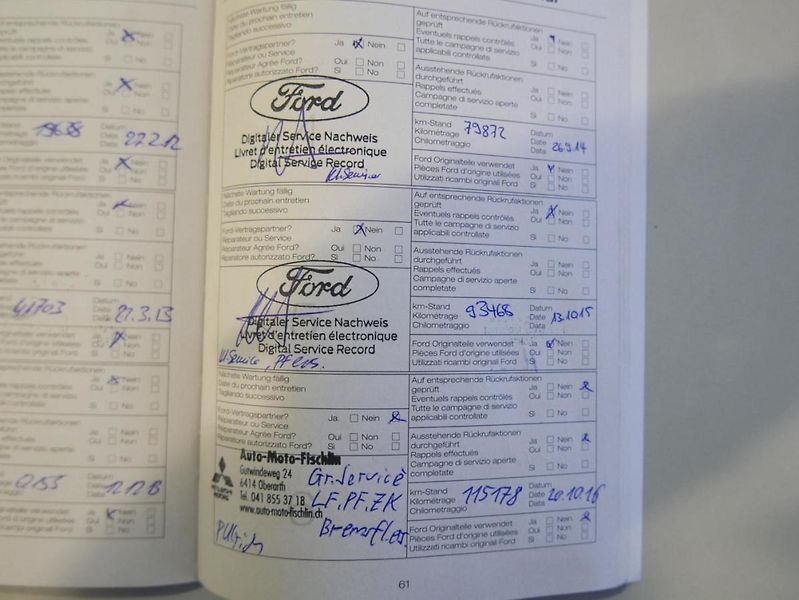 geprüft
Ja Nein
Oui Non
Si No
Ja Nein
Oui Non
Si No
19638
Datum
Date
Data 22.2.12
Ja Nein
Oui Non
Si No
Ja Nein
Oui Non
Si No
Ja Nein
Oui Non
Si No
41703
Datum
Date 21.3.13
Data
Ja Nein
Oui Non
Si No
Ja Nein
Oui Non
Si No
Ja Nein
Oui Non
Si No
Datum
Date
Data
Ja Nein
Oui Non
Si No
Nächste Wartung fällig
Date du prochain entretien
Tagliando successivo
Ford-Vertragspartner? Ja Nein
Réparateur ou Service
Réparateur Agrée Ford? Oui Non
Riparatore autorizzato Ford? Si No
Ford
Digitaler Service Nachweis
Livret d'entretien électronique
Digital Service Record
Auf entsprechende Rückrufaktionen
geprüft Ja Nein
Eventuels rappels contrôlés Oui Non
Tutte le campagne di servizio
applicabili controllate Si No
Ausstehende Rückrufaktionen
durchgeführt Ja Nein
Rappels effectués Oui Non
Campagne di servizio aperte
completate Si No
km-Stand Datum
Kilométrage 79872 Date
Chilometraggio Data 26.9.14
Ford Originalteile verwendet Ja Nein
Pièces Ford d'origine utilisées Oui Non
Utilizzati ricambi original Ford Si No
Nächste Wartung fällig
Date du prochain entretien
Tagliando successivo
Ford-Vertragspartner? Ja Nein
Réparateur ou Service
Réparateur Agrée Ford? Oui Non
Riparatore autorizzato Ford? Si No
Ford
Digitaler Service Nachweis
Livret d'entretien électronique
Digital Service Record
Kl. Service, PF ers.
Auf entsprechende Rückrufaktionen
geprüft Ja Nein
Eventuels rappels contrôlés Oui Non
Tutte le campagne di servizio
applicabili controllate Si No
Ausstehende Rückrufaktionen
durchgeführt Ja Nein
Rappels effectués Oui Non
Campagne di servizio aperte
completate Si No
km-Stand Datum
Kilométrage 93468 Date 13.10.15
Chilometraggio Data
Ford Originalteile verwendet Ja Nein
Pièces Ford d'origine utilisées Oui Non
Utilizzati ricambi original Ford Si No
Nächste Wartung fällig
Date du prochain entretien
Tagliando successivo
Ford-Vertragspartner? Ja Nein
Réparateur ou Service
Réparateur Agrée Ford? Oui Non
Riparatore autorizzato Ford? Si No
Auto-Moto-Fischlin
Gutwindeweg 24
6414 Oberarth
Tel. 041 855 37 18
www.auto-moto-fischlin.ch
Gr. Service
LF, PF, ZK
Bremsfl. ers.
Auf entsprechende Rückrufaktionen
geprüft Ja Nein
Eventuels rappels contrôlés Oui Non
Tutte le campagne di servizio
applicabili controllate Si No
Ausstehende Rückrufaktionen
durchgeführt Ja Nein
Rappels effectués Oui Non
Campagne di servizio aperte
completate Si No
km-Stand Datum
Kilométrage 115178 Date 20.10.16
Chilometraggio Data
Ford Originalteile verwendet Ja Nein
Pièces Ford d'origine utilisées Oui Non
Utilizzati ricambi original Ford Si No
61